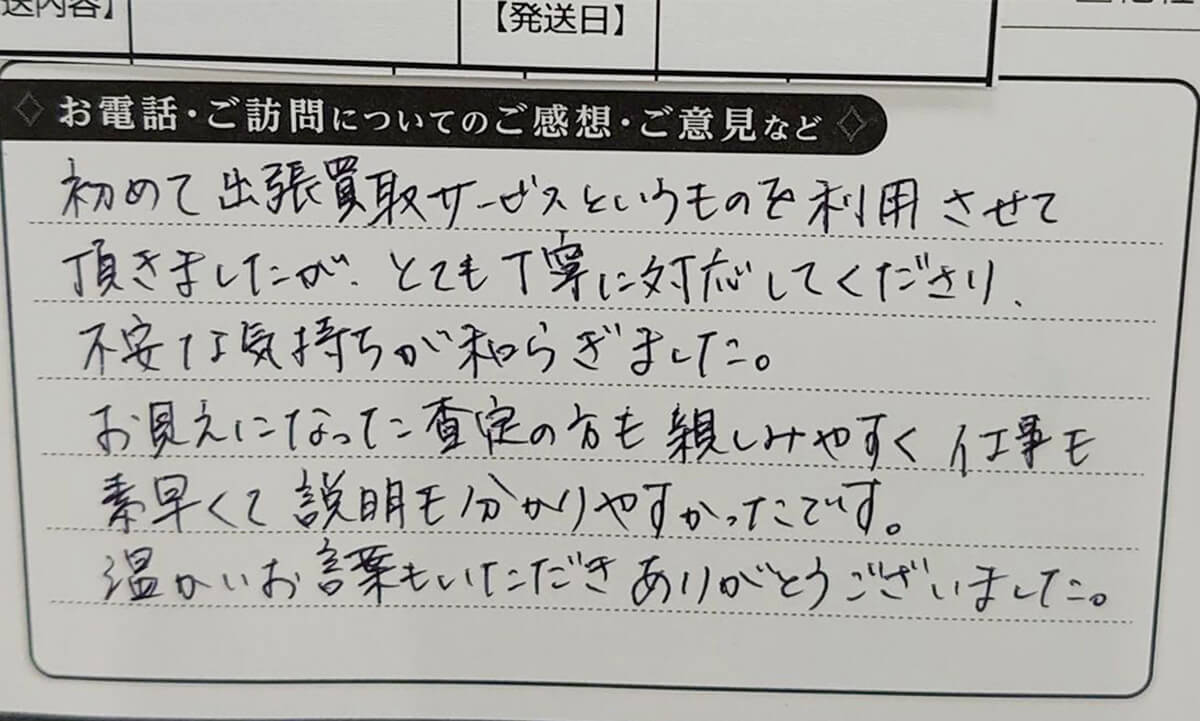 送内容】
【発送日】
お電話・ご訪問についてのご感想・ご意見など
初めて出張買取サービスというものを利用させて
頂きましたが、とても丁寧に対応してくださり、
不安な気持ちが和らぎました。
お見えになった査定の方も親しみやすく仕事も
素早くて説明も分かりやすかったです。
温かいお言葉もいただきありがとうございました。